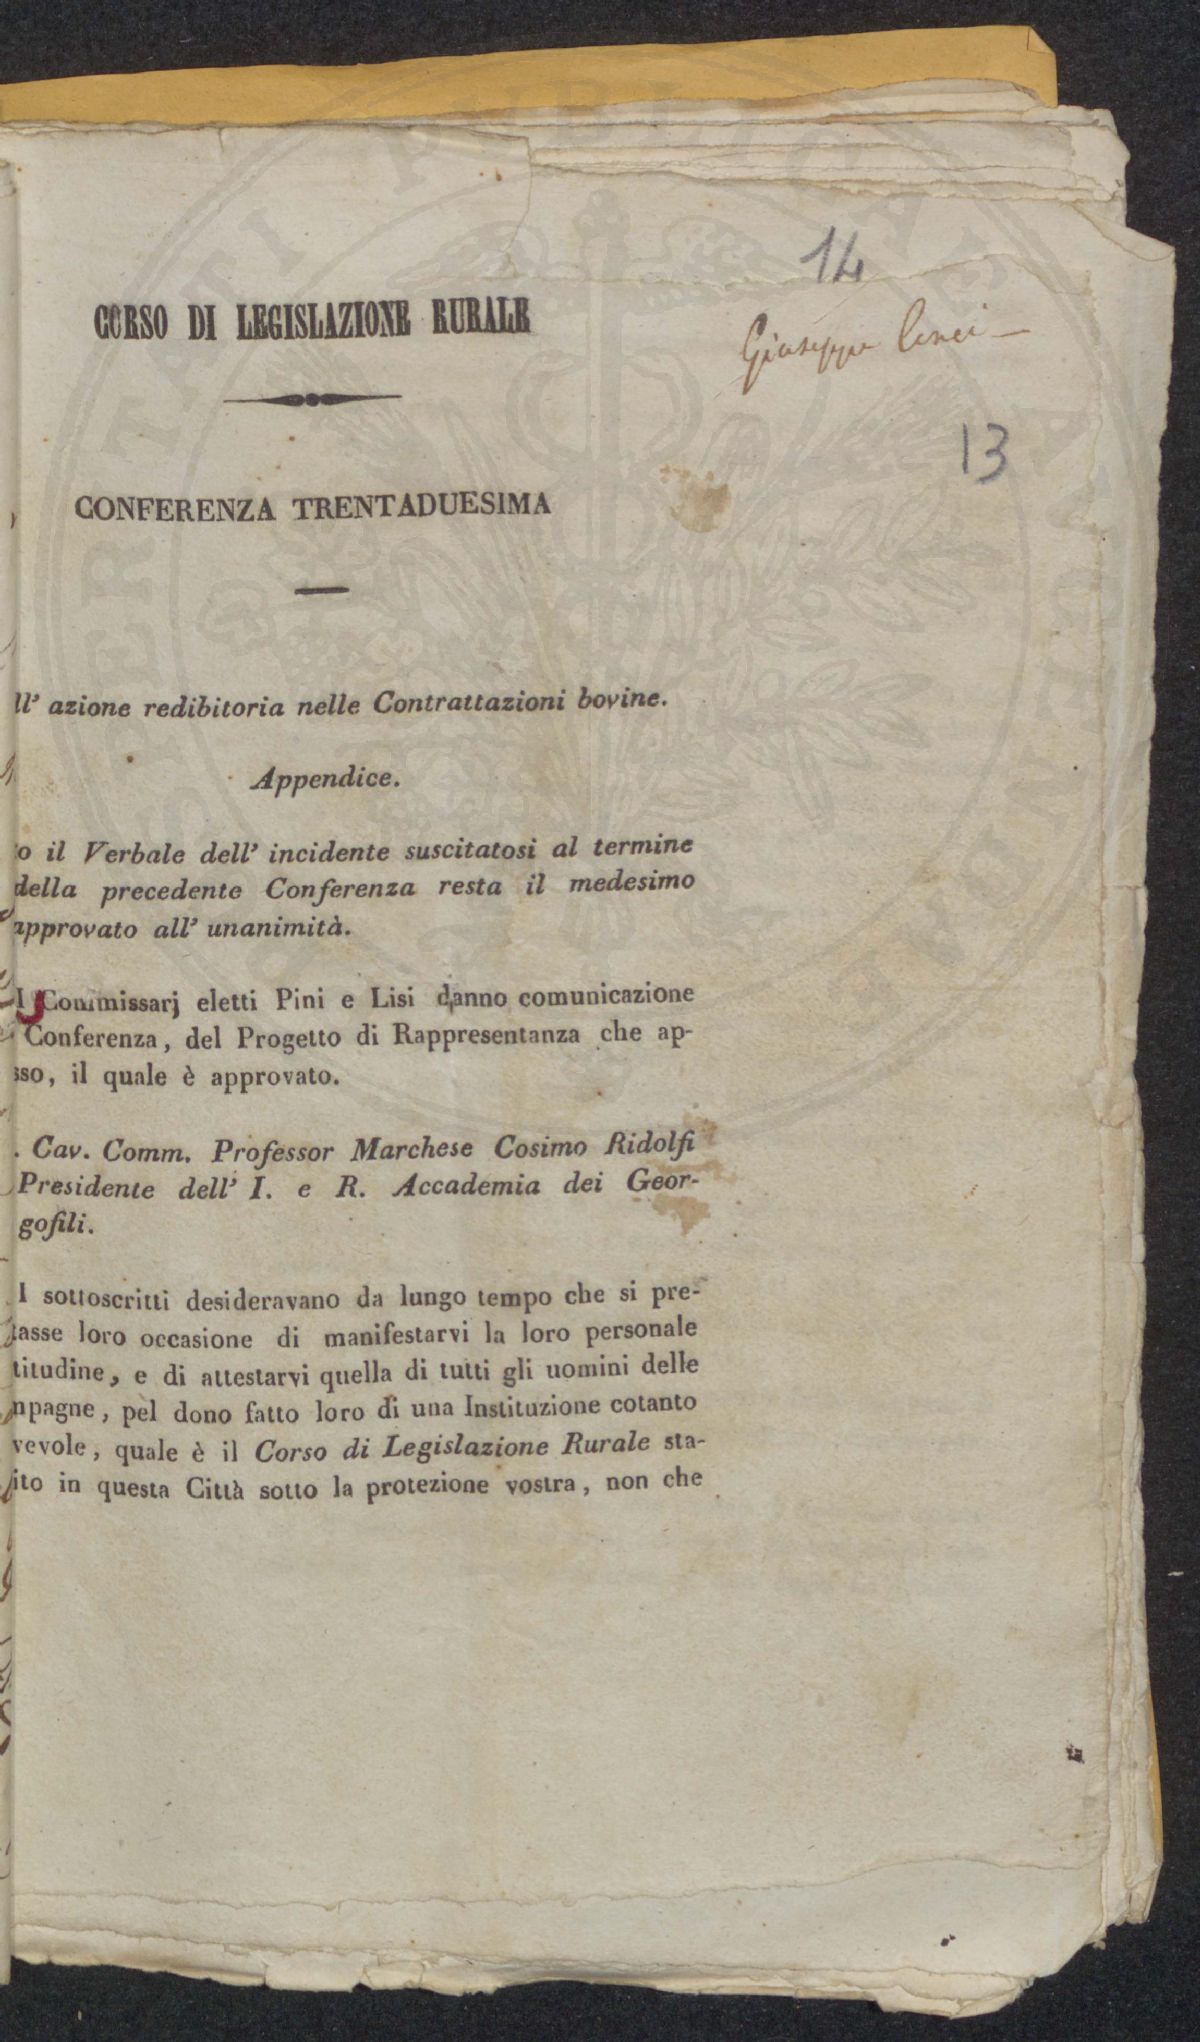 14
CORSO DI LEGISLAZIONE RURALE
Giuseppe
13
CONFERENZA TRENTADUESIMA
ll' azione redibitoria nelle Contrattazioni bovine.
Appendice.
o il Verbale dell' incidente suscitatosi al termine
della precedente Conferenza resta il medesimo
approvato all' unanimità.
I Commissarj eletti Pini e Lisi danno comunicazione
Conferenza, del Progetto di Rappresentanza che ap-
sso, il quale è approvato.
. Cav. Comm. Professor Marchese Cosimo Ridolfi
Presidente dell' I. e R. Accademia dei Geor-
gofili.
I sottoscritti desideravano da lungo tempo che si pre-
tasse loro occasione di manifestarvi la loro personale
titudine, e di attestarvi quella di tutti gli uomini delle
mpagne, pel dono fatto loro di una Instituzione cotanto
vevole, quale è il Corso di Legislazione Rurale sta-
ito in questa Città sotto la protezione vostra, non che